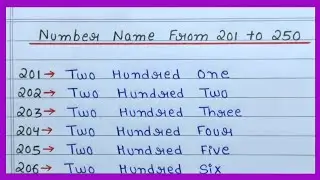 Number Name From 201 to 250
201→ Two Hundred One
202→ Two Hundred Two
203→ Two Hundred Three
204→ Two Hundred Four
205→ Two Hundred Five
206→ Two Hundred Six